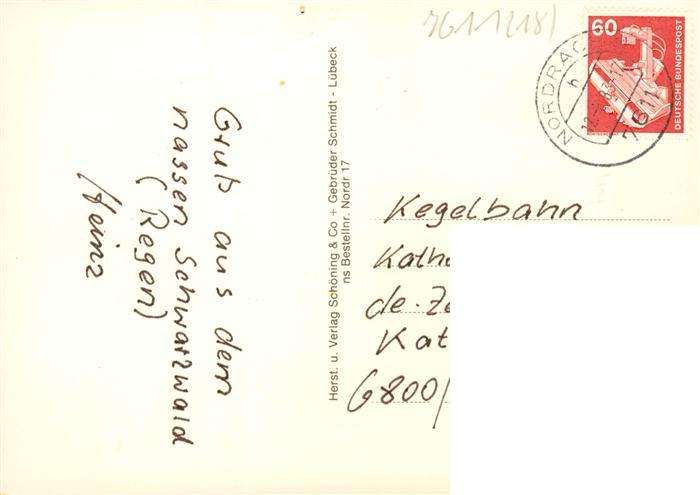 7611 (18)
60
DEUTSCHE BUNDESPOST
NORDRAC
7611
h
Gruß aus dem
nassen Schwarzwald
(Regen)
Heinz
Herst. u. Verlag Schöning & Co + Gebrüder Schmidt - Lübeck
ns Bestellnr. Nordr 17
Kegelbahn
Kathe
de-Ze
Kat
6800/